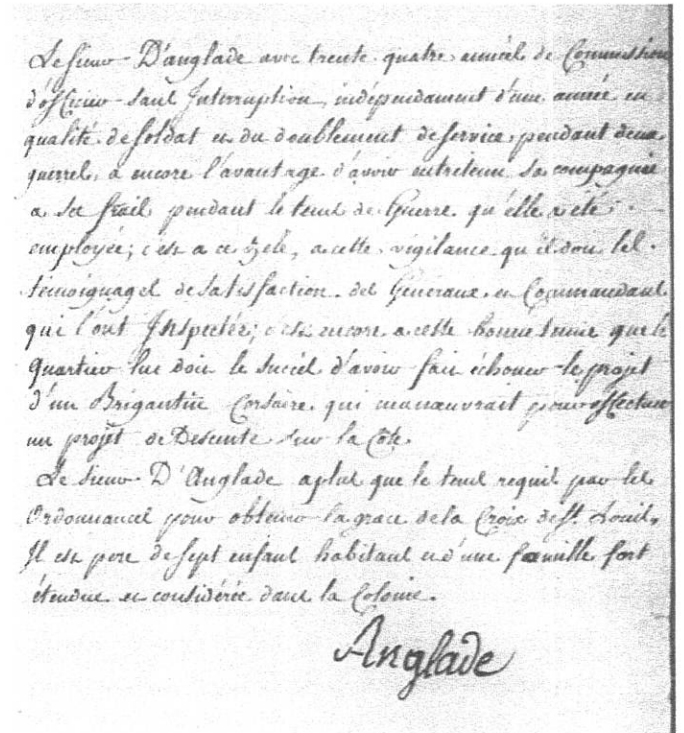 Le Sieur D'anglade avec trente quatre années de Commission
d'officier sans Interruption, indépendament d'une année en
qualité de soldat et du doublement de service, pendant deux
guerres, a encore l'avantage d'avoir entretenu sa compagnie
a ses frais pendant le tems de Guerre qu'elle a eté
employée; c'est a ce zele, a cette vigilance qu'il doit les
témoignages de satisfaction des Généraux et Commandans
qui l'ont Inspectée; c'est encore a cette bonne tenue que le
Quartier lui doit le succès d'avoir fait échouer le projet
d'un Brigantin Corsaire qui manœuvrait pour effectuer
un projet de Descente sur la Côte.
Le Sieur D'Anglade a plus que le tems requis par les
Ordonnances pour obtenir la grace de la Croix de St. Louis,
Il est pere de sept enfans habitans et d'une famille fort
étendue et considérée dans la Colonie.
Anglade